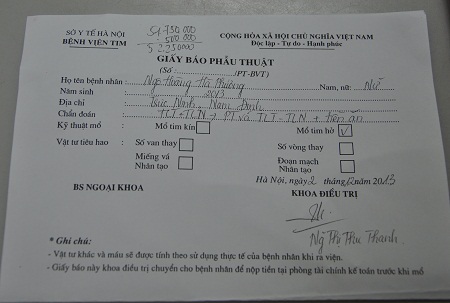 SỞ Y TẾ HÀ NỘI
BỆNH VIỆN TIM
51.730 000
500 000
52230000
CỘNG HÒA XÃ HỘI CHỦ NGHĨA VIỆT NAM
Độc lập - Tự do - Hạnh phúc
GIẤY BÁO PHẪU THUẬT
(Số: /PT-BVT)
Họ tên bệnh nhân: Ngô Hoàng Hà Phương Nam, nữ: Nữ
Năm sinh 2013
Địa chỉ Trực Ninh - Nam Định
Chẩn đoán TLT-TLN → PT vá TLT-TLN +
Kỹ thuật mổ: Mổ tim kín Mổ tim hở √
Vật tư tiêu hao: Số van thay Số vòng thay
Miếng vá Nhân tạo Đoạn mạch Nhân tạo
Hà Nội, ngày 2 tháng 12 năm 2013
BS NGOẠI KHOA KHOA ĐIỀU TRỊ
Ng Thị Thu Thanh
* Ghi chú:
- Vật tư khác và máu sẽ được tính theo sử dụng thực tế của bệnh nhân khi ra viện.
- Giấy báo này khoa điều trị chuyển cho bệnh nhân để nộp tiền tại phòng tài chính kế toán trước khi mổ